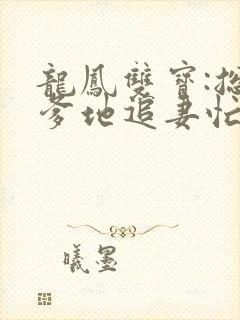 龍鳳雙寶:總
爹地追妻忙
曦墨